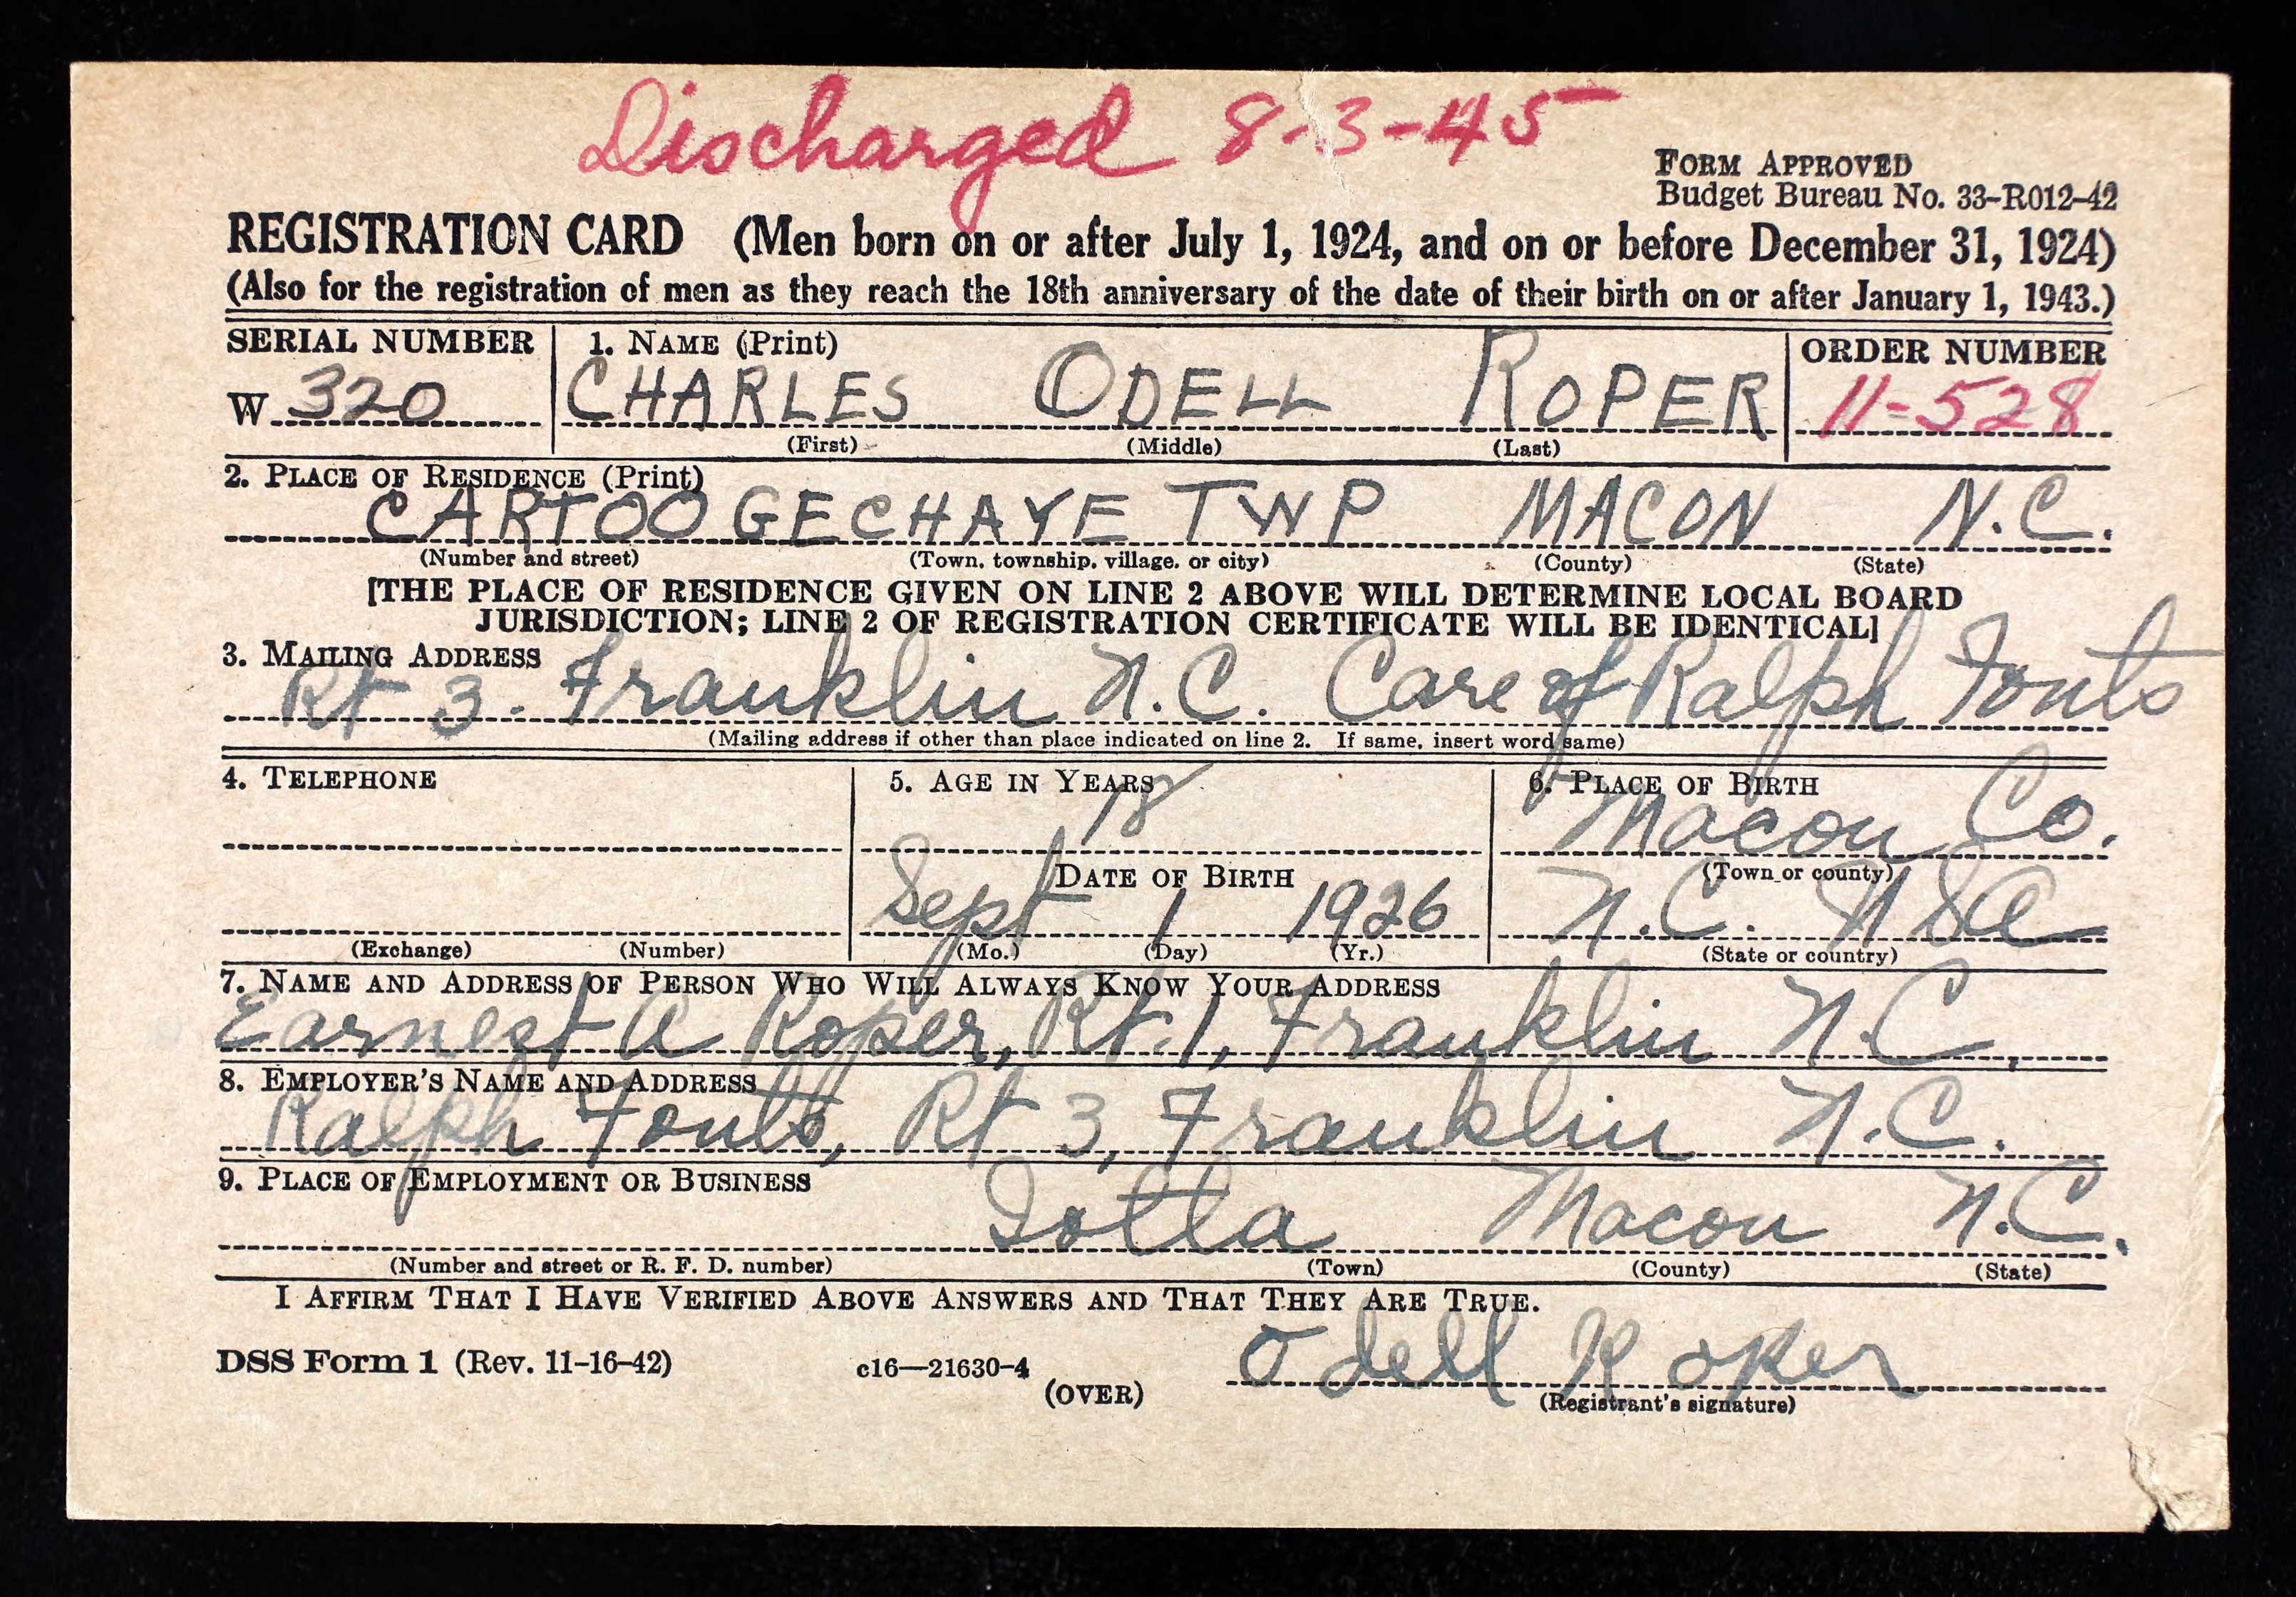 Discharged 8-3-45
FORM APPROVED
Budget Bureau No. 33-R012-42
REGISTRATION CARD (Men born on or after July 1, 1924, and on or before December 31, 1924)
(Also for the registration of men as they reach the 18th anniversary of the date of their birth on or after January 1, 1943.)
SERIAL NUMBER 1. NAME (Print) ORDER NUMBER
W 320 CHARLES ODELL ROPER 11-528
(First) (Middle) (Last)
2. PLACE OF RESIDENCE (Print)
CARTOOGECHAYE TWP MACON N.C.
(Number and street) (Town, township, village, or city) (County) (State)
[THE PLACE OF RESIDENCE GIVEN ON LINE 2 ABOVE WILL DETERMINE LOCAL BOARD
JURISDICTION; LINE 2 OF REGISTRATION CERTIFICATE WILL BE IDENTICAL]
3. MAILING ADDRESS
Rt 3. Franklin N.C. Care of Ralph Fouts
(Mailing address if other than place indicated on line 2. If same, insert word same)
4. TELEPHONE 5. AGE IN YEARS 6. PLACE OF BIRTH
18 Macon Co.
DATE OF BIRTH (Town or county)
Sept 1 1926 N.C. USA
(Exchange) (Number) (Mo.) (Day) (Yr.) (State or country)
7. NAME AND ADDRESS OF PERSON WHO WILL ALWAYS KNOW YOUR ADDRESS
Earnest A Roper, Rt. 1, Franklin N.C.,
8. EMPLOYER'S NAME AND ADDRESS
Ralph Fouts, Rt 3, Franklin N.C.
9. PLACE OF EMPLOYMENT OR BUSINESS
Iotla Macon N.C.
(Number and street or R. F. D. number) (Town) (County) (State)
I AFFIRM THAT I HAVE VERIFIED ABOVE ANSWERS AND THAT THEY ARE TRUE.
DSS Form 1 (Rev. 11-16-42) c16—21630-4 Odell Roper
(OVER) (Registrant's signature)